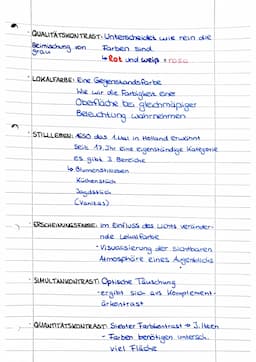 QUALITÄTSKONTRAST: Unterscheidet wie rein die
Beimischung von Farben sind.
grau
↳ Rot und weiß = rosa
LOKALFARBE: Eine Gegenstandsfarbe
Wie wir die Farbigkeit einer
Oberfläche bei gleichmäßiger
Beleuchtung wahrnehmen
STILLLEBEN: 1650 das 1. Mal in Holland erwähnt
Seit 17. Jhr eine eigenständige Kategorie
es gibt 3 Bereiche
↳ Blumenstillleben
Küchenstück
Jagdstück
(Vanitas)
ERSCHEINUNGSFARBE: im Einfluss des Lichts veränder-
nde Lokalfarbe
- Visualisierung der sichtbaren
Atmosphäre eines Augenblicks
SIMULTANKONTRAST: Optische Täuschung
- ergibt sich aus Komplement-
ärkontrast
QUANTITÄTSKONTRAST: Siebter Farbkontrast → J. Itten
- Farben benötigen untersch.
viel Fläche